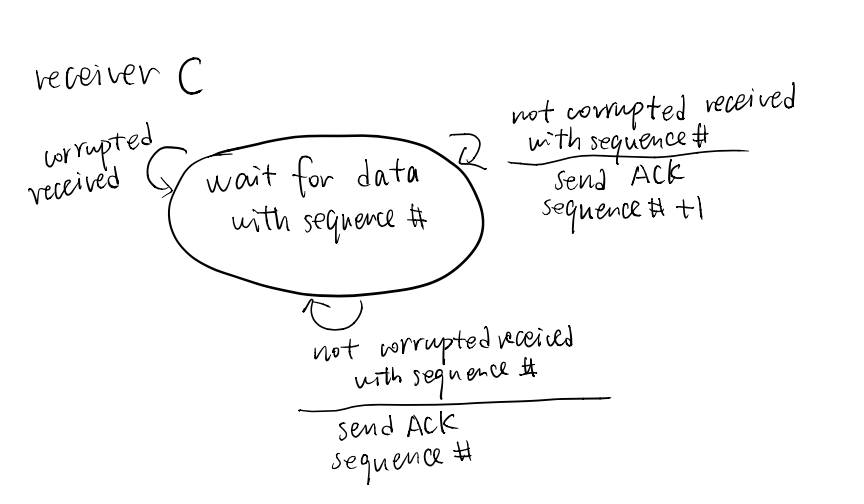 receiver C
corrupted
received
wait for data
with sequence #
not corrupted received
with sequence #
send ACK
sequence # +1
not corrupted received
with sequence #
send ACK
sequence #